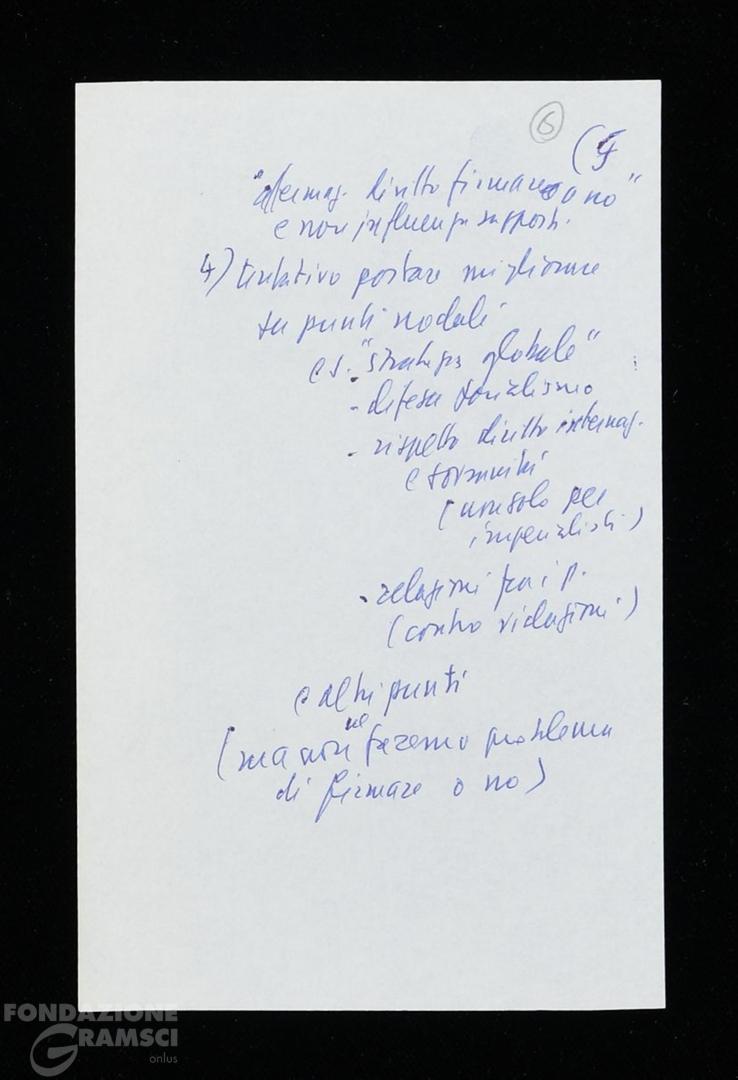 6
(5
"affermaz. diritto firmare o no"
e non influenza rapporti.
4) tentativo portare migliorare
su punti nodali
es. "strategia globale"
- difesa socialismo
- rispetto diritto internaz.
e sovranità
(non solo per
imperialisti)
- relazioni fra i p.
(contro violazioni)
e altri punti
ne
(ma non faremo problema
di firmare o no)
FONDAZIONE
GRAMSCI
onlus